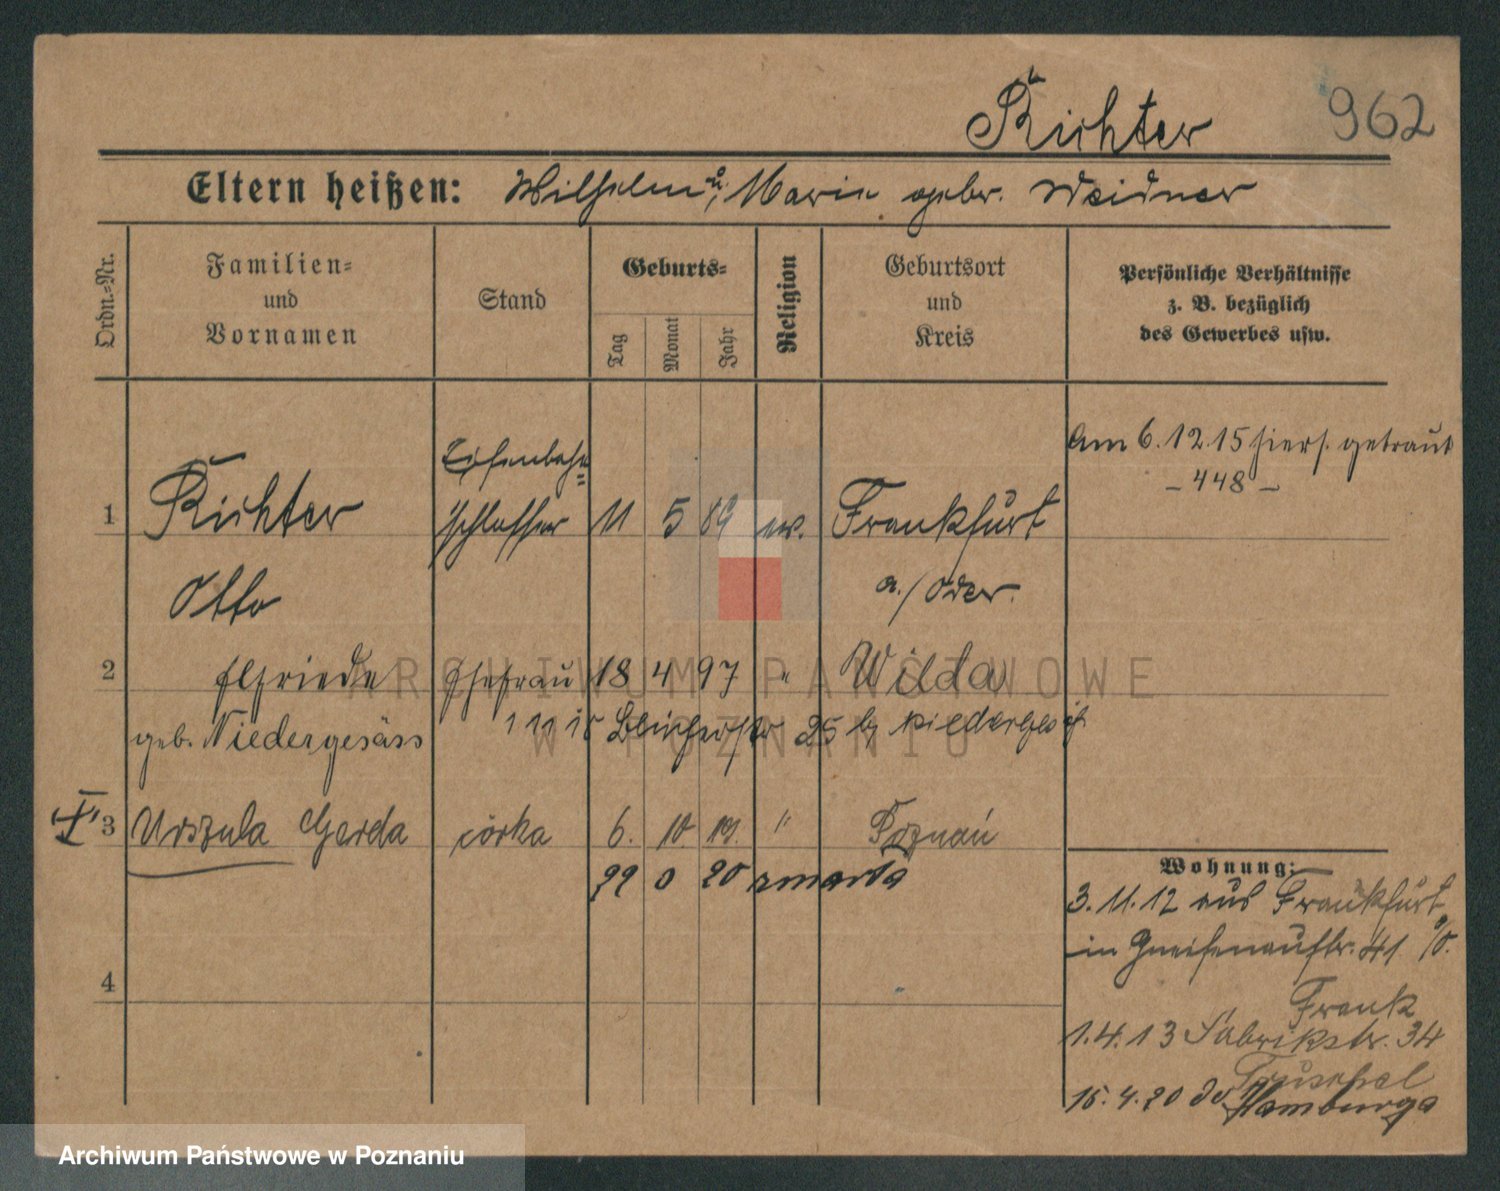 Richter 962
Eltern heißen: Wilhelm u. Marie gebr. Weidner
Ordn.-Nr.
Familien-
und
Vornamen
Stand
Geburts-
Tag
Monat
Jahr
Religion
Geburtsort
und
Kreis
Persönliche Verhältnisse
z. B. bezüglich
des Gewerbes usw.
Am 6.12.15 hiers. getraut
- 448 -
Eisenbahn=
1 Richter schlosser 11 5 89 ev. Frankfurt
Otto a./Oder.
2 Elfriede Ehefrau 18 4 97 " Wilda
geb. Niedergesäss
1 11 15 Blücherstr 25 b/ Niedergesäß
3 Urszula Gerda córka 6. 10. 19. " Poznań
20 zmarła
4
Wohnung:
3.11.12 aus Frankfurt
a/O.
in Gneisenaustr. 41
Frank
1.4.13 Fabrikstr. 34
15.4.20 do Hamburga
ARCHIWUM PAŃSTWOWE
W POZNANIU
Archiwum Państwowe w Poznaniu